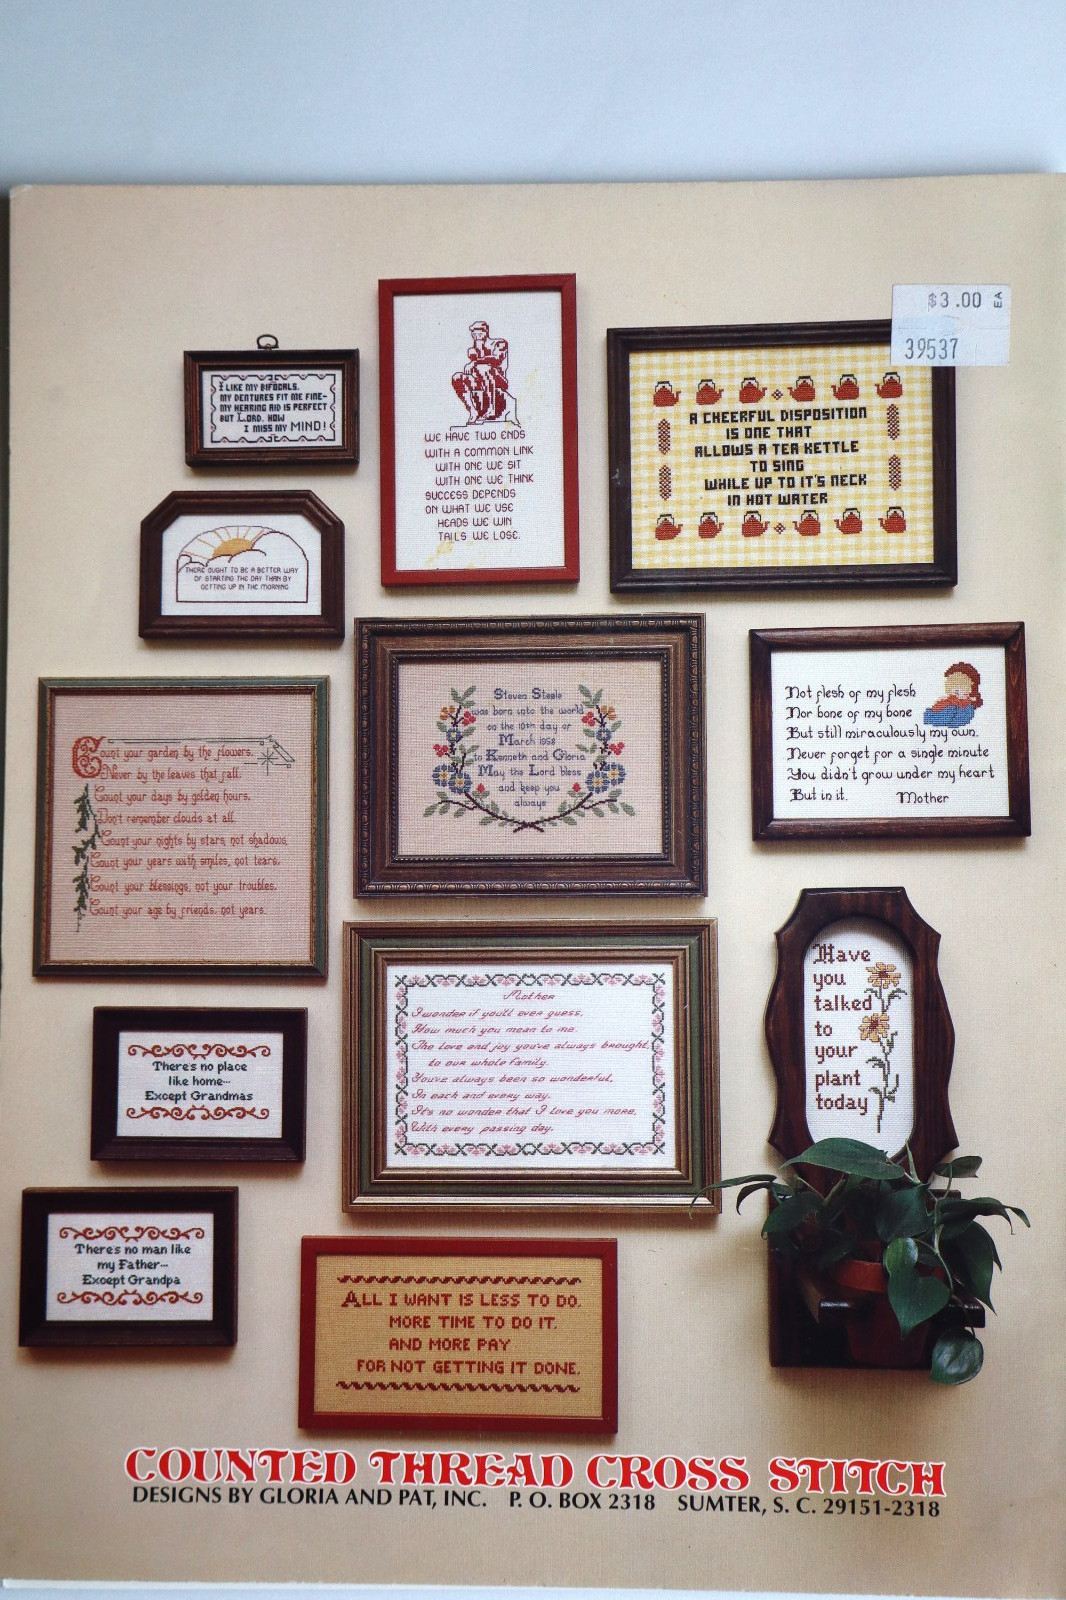 $3.00 EA
39537
I LIKE MY BIFOCALS.
MY DENTURES FIT ME FINE–
MY HEARING AID IS PERFECT
BUT LORD, HOW
I MISS MY MIND!
WE HAVE TWO ENDS
WITH A COMMON LINK
WITH ONE WE SIT
WITH ONE WE THINK
SUCCESS DEPENDS
ON WHAT WE USE
HEADS WE WIN
TAILS WE LOSE.
A CHEERFUL DISPOSITION
IS ONE THAT
ALLOWS A TEA KETTLE
TO SING
WHILE UP TO IT'S NECK
IN HOT WATER
THERE OUGHT TO BE A BETTER WAY
OF STARTING THE DAY THAN BY
GETTING UP IN THE MORNING
Steven Steele
was born into the world
on the 10th day of
March 1958
to Kenneth and Gloria
May the Lord bless
and keep you
always
Not flesh of my flesh
Nor bone of my bone
But still miraculously my own.
Never forget for a single minute
You didn't grow under my heart
But in it. Mother
Count your garden by the flowers,
Never by the leaves that fall.
Count your days by golden hours,
Don't remember clouds at all.
Count your nights by stars, not shadows,
Count your years with smiles, not tears,
Count your blessings, not your troubles,
Count your age by friends, not years.
Mother
I wonder if you'll ever guess,
How much you mean to me.
The love and joy you've always brought,
to our whole family.
You've always been so wonderful,
In each and every way.
It's no wonder that I love you more,
With every passing day.
Have
you
talked
to
your
plant
today
There's no place
like home--
Except Grandmas
There's no man like
my Father--
Except Grandpa
ALL I WANT IS LESS TO DO,
MORE TIME TO DO IT,
AND MORE PAY
FOR NOT GETTING IT DONE.
COUNTED THREAD CROSS STITCH
DESIGNS BY GLORIA AND PAT, INC. P. O. BOX 2318 SUMTER, S. C. 29151-2318